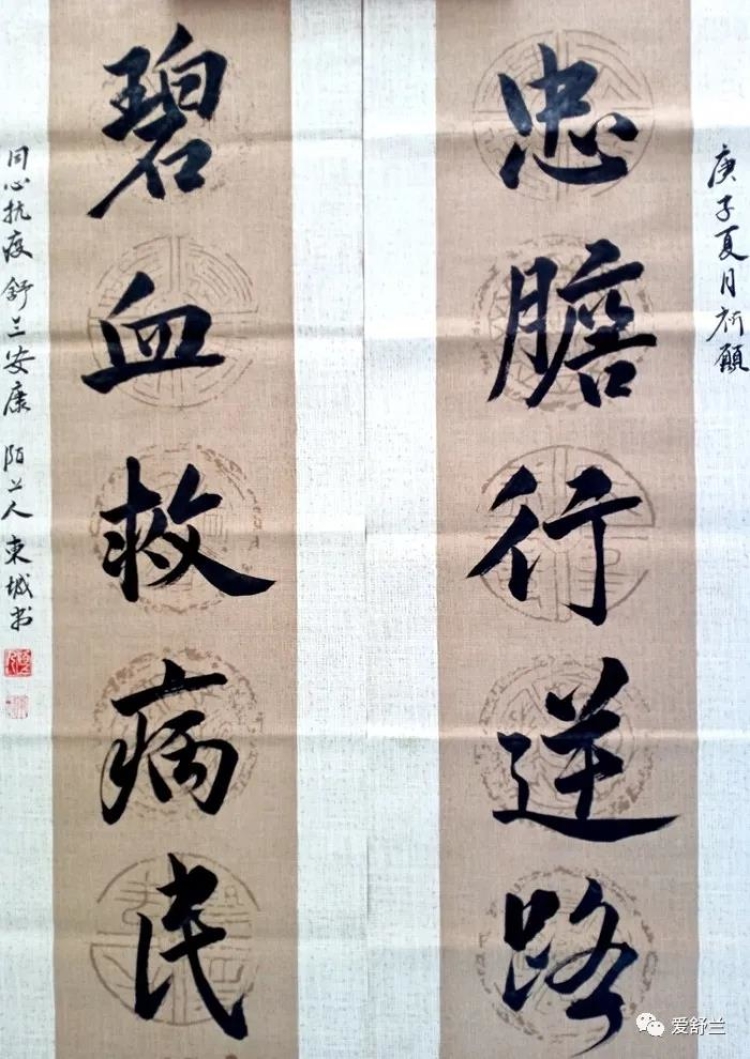 庚子夏月祈願
忠膽行逆路
碧血救病民
同心抗疫 舒兰安康 陌上人东城书
爱舒兰